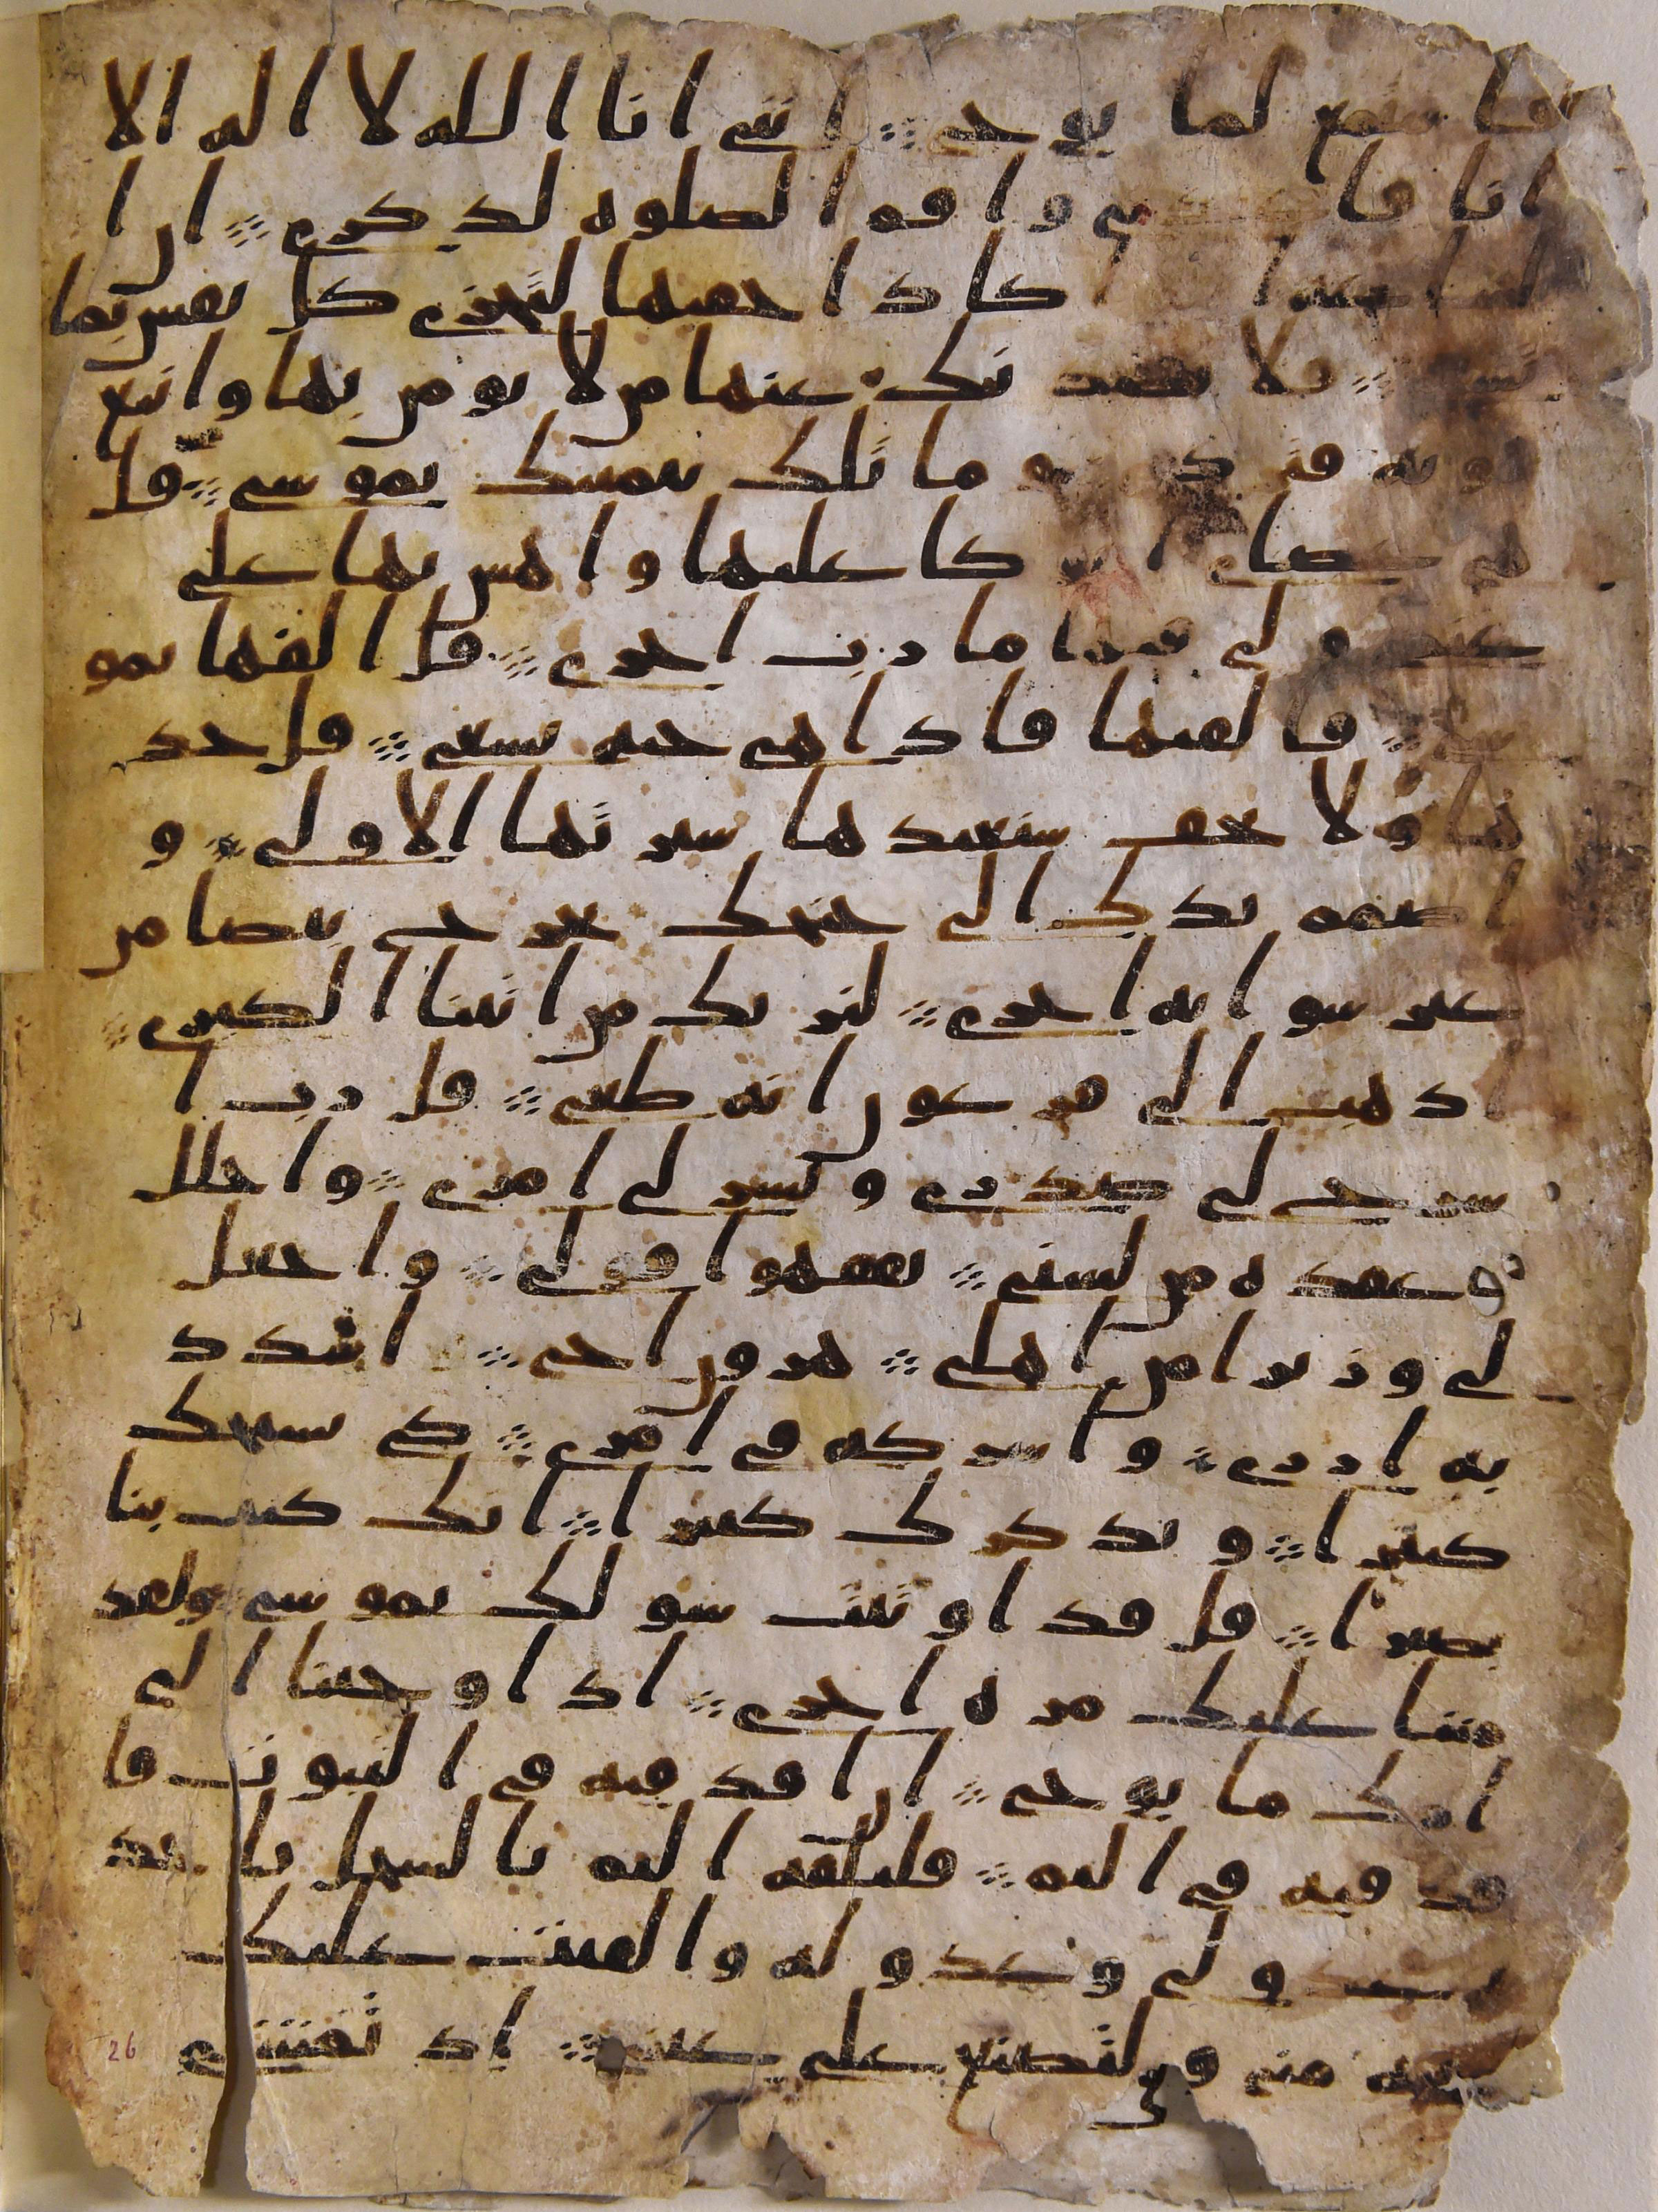 فاستمع لما يوحى انني انا الله لا اله الا
انا فا واقم الصلوه لذكري ان ا
لساعه ا كاد اخفيها لتجزى كل نفس بما
تسعى فلا يصدنك عنها من لا يومن بها واتبع
هويه فتردى وما تلك بيمينك يموسى قل
هي عصاي اتوكا عليها واهش بها على
غنمي ولي فيها مارب اخرى قل القها يمو
سى فالقيها فاذا هي حيه تسعى قل خذ
ها ولا تخف سنعيدها سيرتها الاولى و
اضمم يدك الى جنحك تخرج بيضا من
غير سو ايه اخرى لنريك من ايتنا الكبرى
اذهب الى فرعون انه طغى قل رب ا
شرح لي صدري ويسر لي امري واحلل
عقده من لسني يفقهوا قولي واجعل
لي وزيرا من اهلي هرون اخي اشدد
به ازري واشركه في امري كي نسبحك
كثيرا ونذكرك كثيرا انك كنت بنا
بصيرا قل قد اوتيت سولك يموسى ولقد
مننا عليك مره اخرى اذ اوحينا الى
امك ما يوحى ان اقذفيه في التبوت فا
قذفيه في اليم فليلقه اليم بالسحل ياخذ
ه عدو لي وعدو له والقيت عليك
محبه مني ولتصنع على عيني اذ تمشي
26